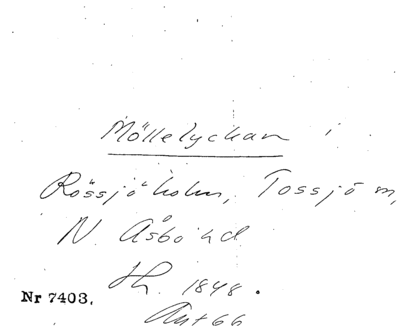 Möllelyckan i
Rössjöholm, Tossjö m,
N. Åsbo hd
Sk. 1848.
Nr 7403.
Ant 66